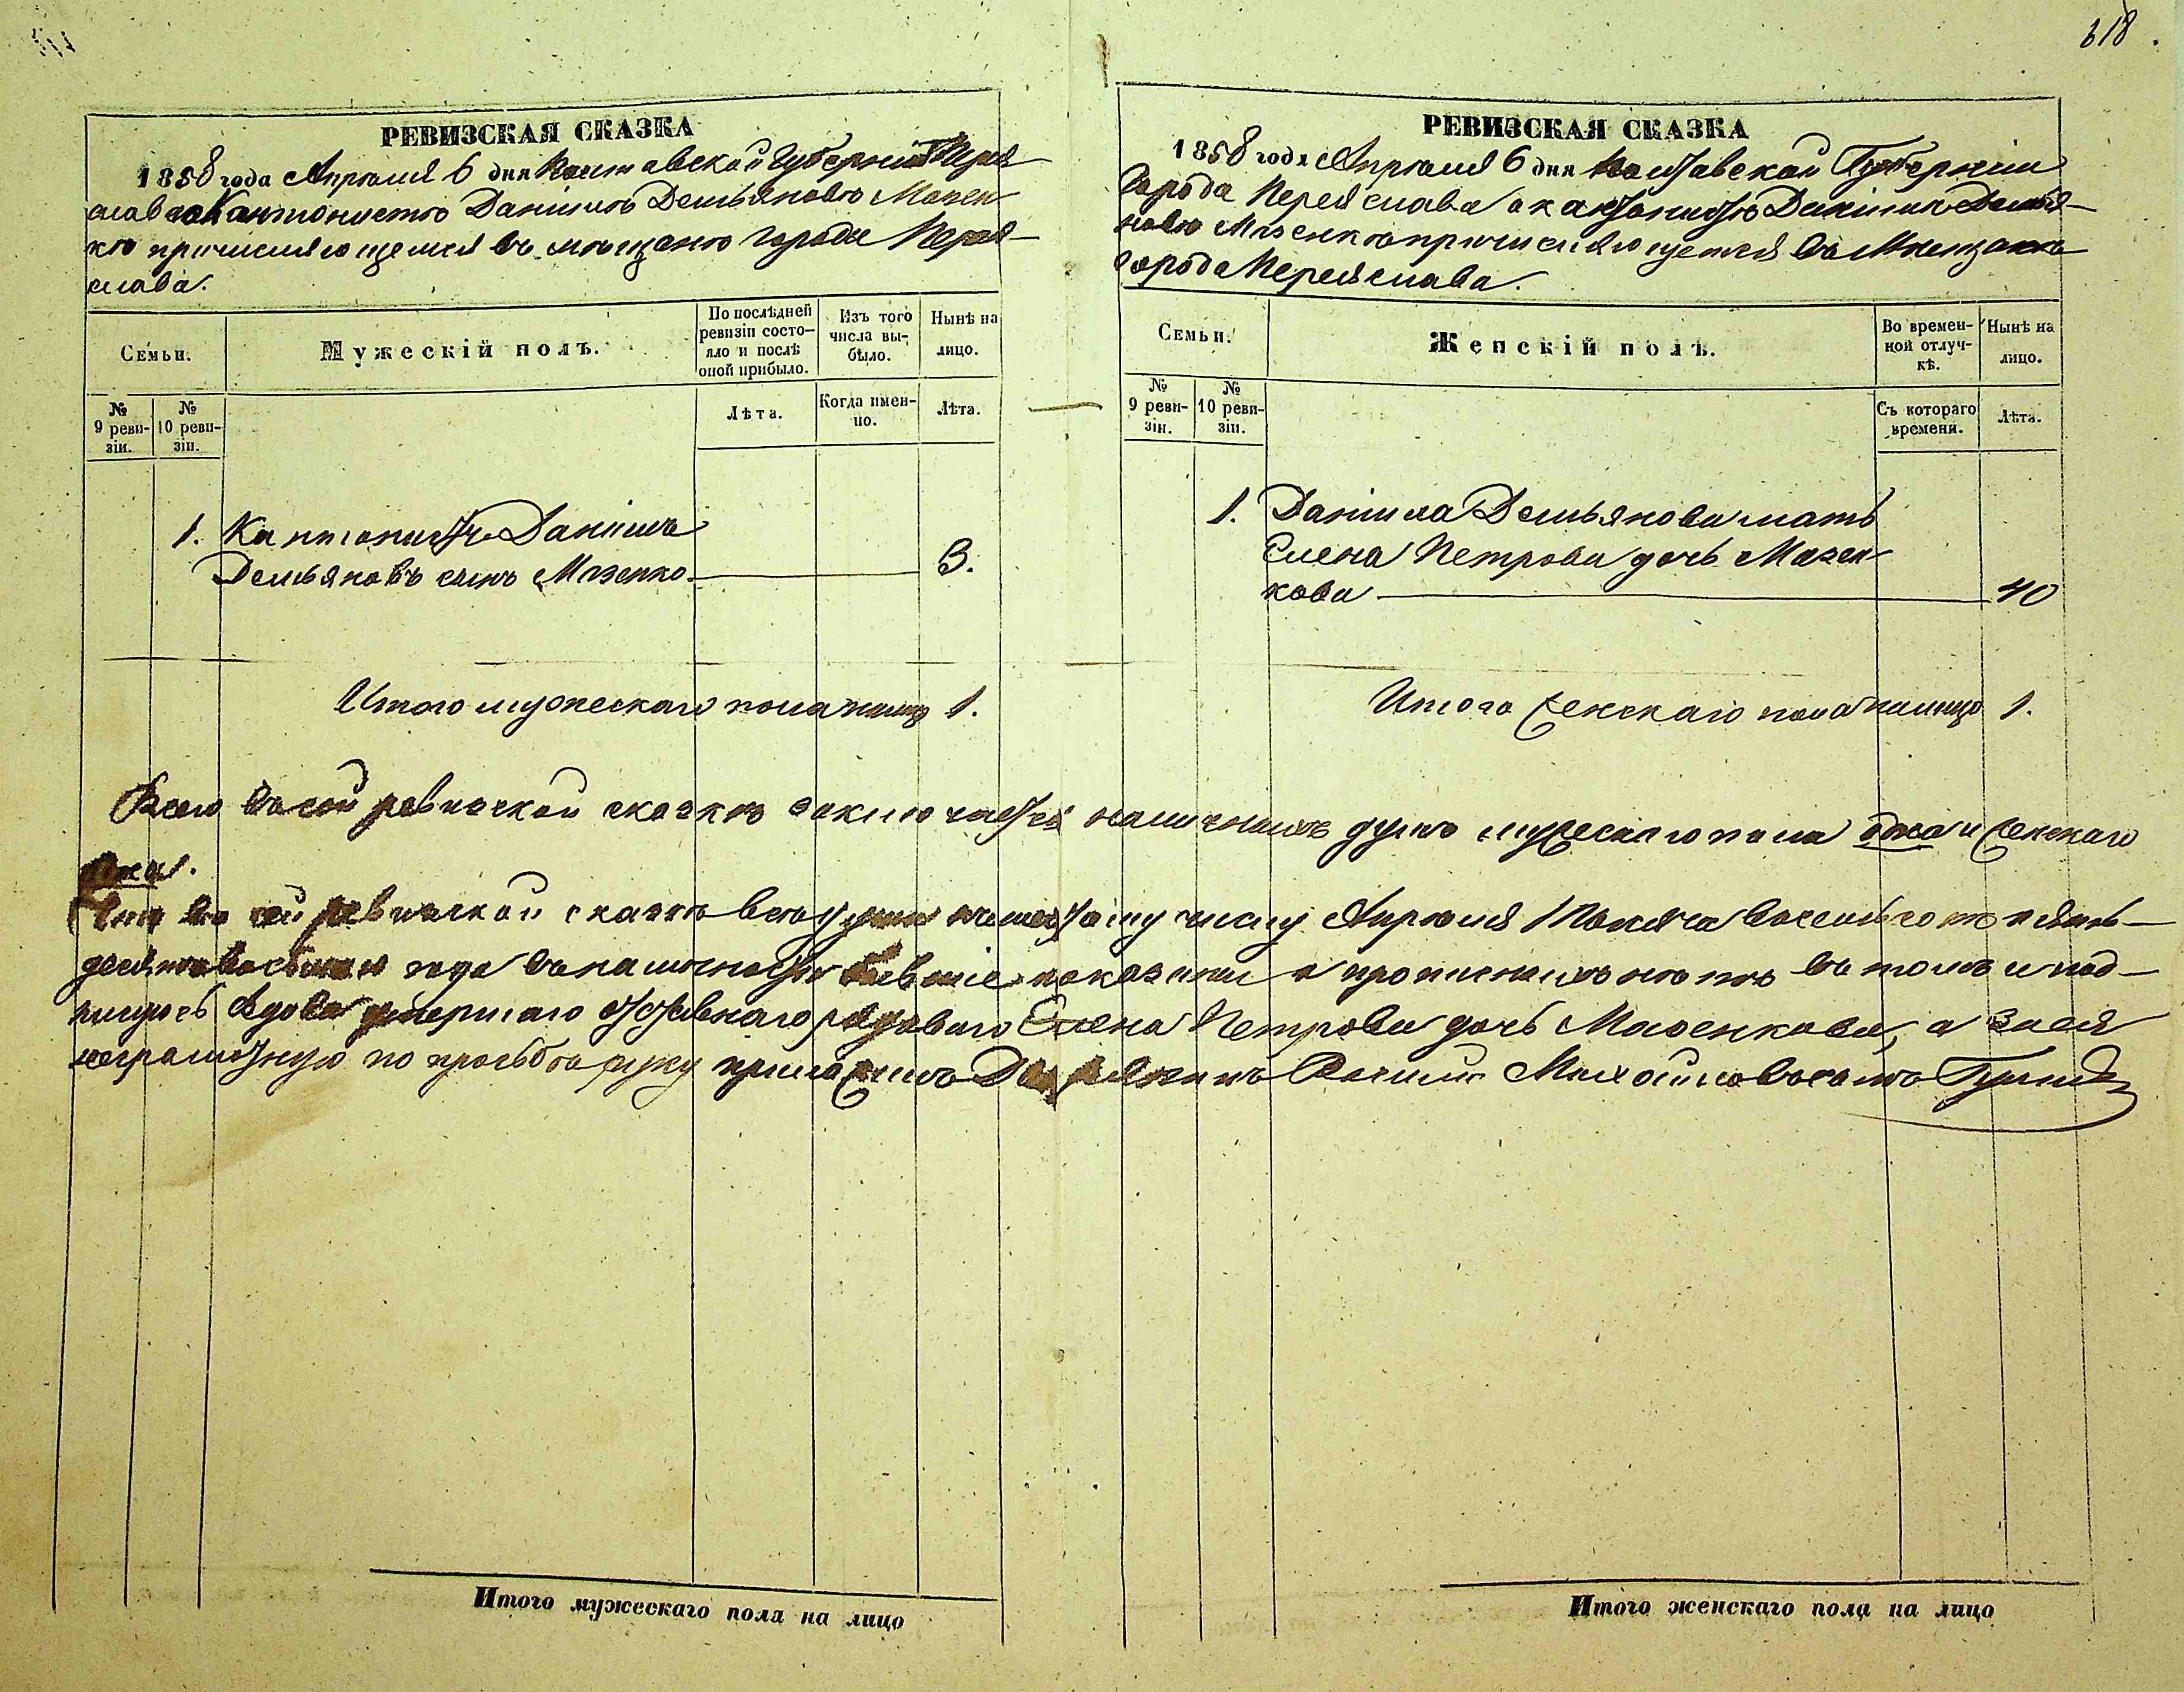 618.
РЕВИЗСКАЯ СКАЗКА
1858 года Апрѣля 6 дня Полтавской Губерніи Перея
слава о Кантонистѣ Даніилѣ Демьяновѣ Мазен
кѣ причисляющемся въ мѣщане города Перея-
слава.
Семьи.
Мужескій полъ.
По послѣдней ревизіи состо-
яло и послѣ оной прибыло.
Изъ того числа вы-
было.
Нынѣ на лицо.
№ 9 реви-
зіи.
№ 10 реви-
зіи.
Лѣта.
Когда имен-
но.
Лѣта.
1. Кантонистъ Даніилъ
Демьяновъ сынъ Мазенко 3.
Итого мужескаго пола налицо 1.
РЕВИЗСКАЯ СКАЗКА
1858 года Апрѣля 6 дня Полтавской Губерніи
Города Переяслава о кантонистѣ Даніилѣ Демья-
новѣ Мазенкѣ причисляющемся въ Мѣщане
города Переяслава.
Семьи.
Женскій полъ.
Во времен-
ной отлуч-
кѣ.
Нынѣ на лицо.
№ 9 реви-
зіи.
№ 10 реви-
зіи.
Съ котораго времени.
Лѣта.
1. Даніила Демьянова мать
Елена Петрова дочь Мазен-
кова 40
Итого женскаго пола налицо 1.
Всего въ сей ревизской сказкѣ заключается наличныхъ душъ мужескаго пола одна и женскаго
одна.
Что въ сей ревизской сказкѣ всѣ души къ шестому числу Апрѣля Тысяча восемьсотъ пять-
десятъ восьмаго года въ наличности бывшіе показаны и прописныхъ нѣтъ въ томъ и под-
пишусь Вдова умершаго отставнаго рядоваго Елена Петрова дочь Мазенкова, а за нея
неграмотную по просьбѣ руку приложилъ Дворянинъ Василій Михайловъ сынъ
Итого мужескаго пола на лицо
Итого женскаго пола на лицо